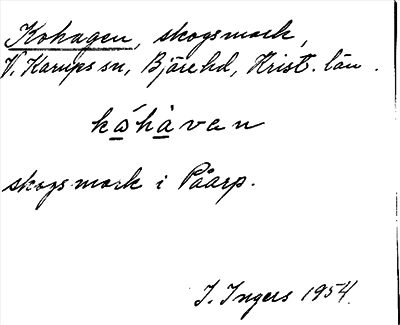 Kohagen, skogsmark,
V. Karups sn, Bjäre hd, Krist. län.
kåhàvan
skogsmark i Påarp.
I. Ingers 1954.